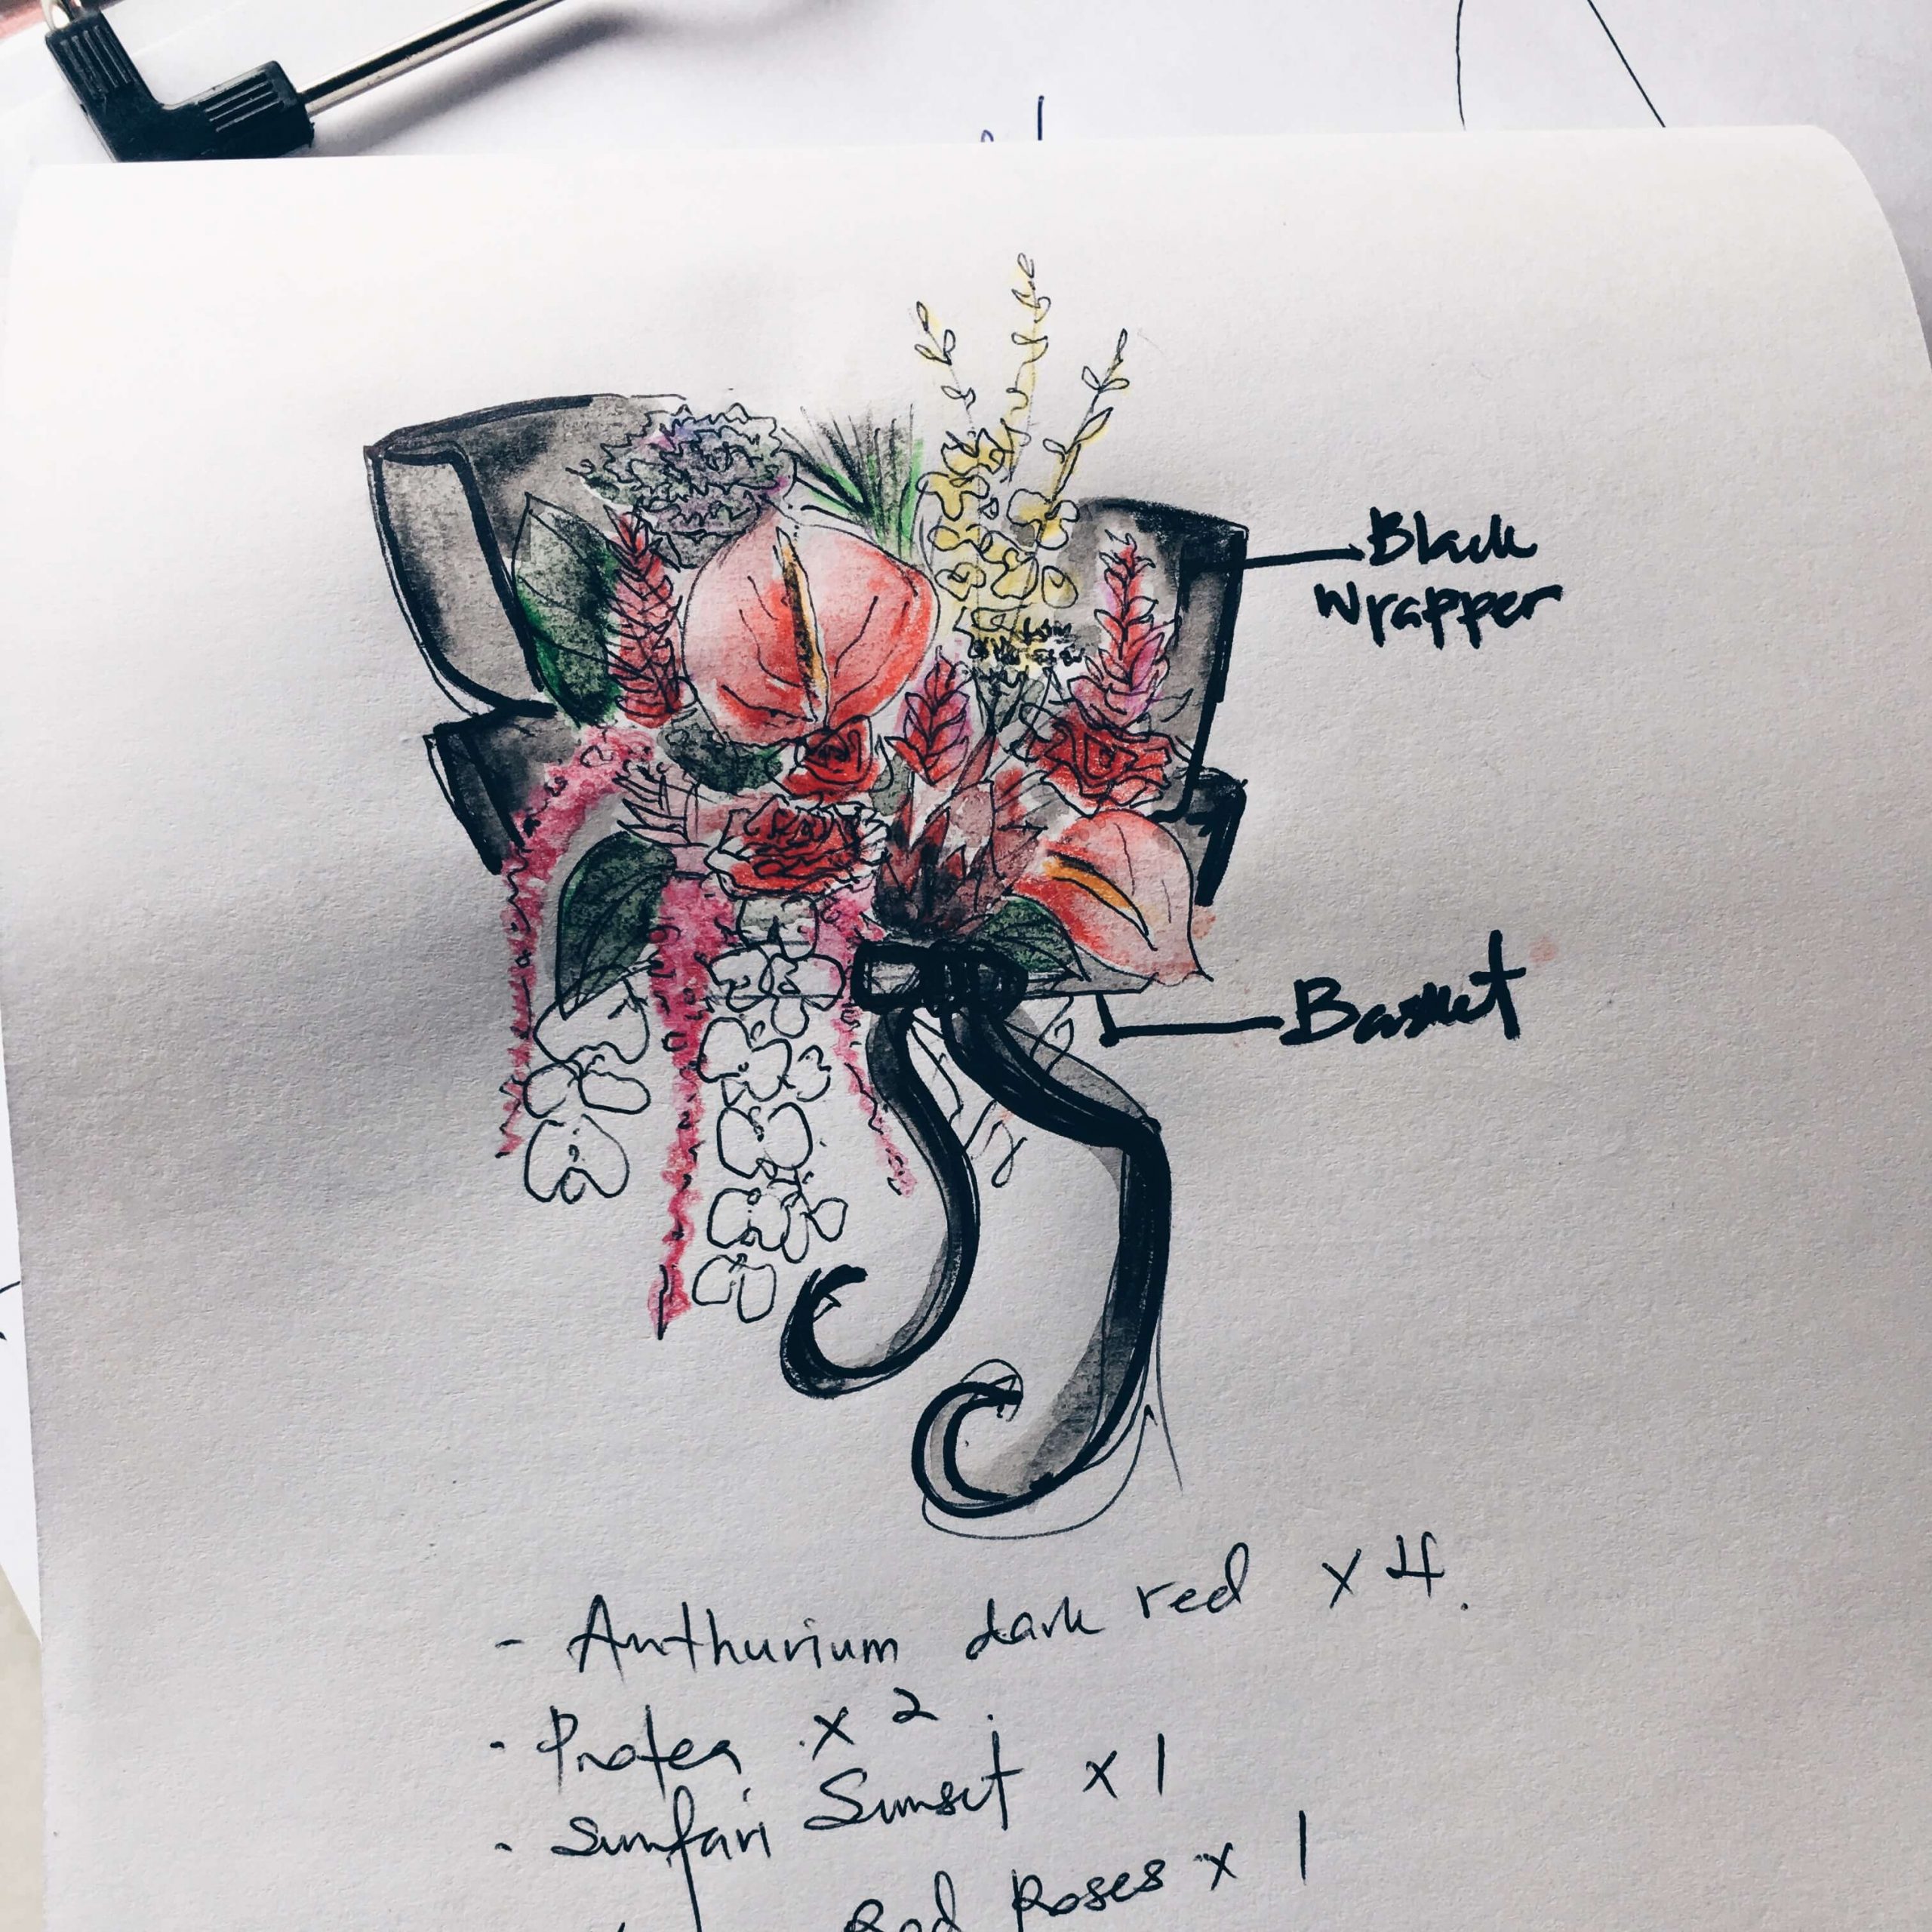 Black
Wrapper
Basket
- Anthurium dark red x 4.
- Protea x 2.
- Sunfari Sunset x 1
Red Roses x 1